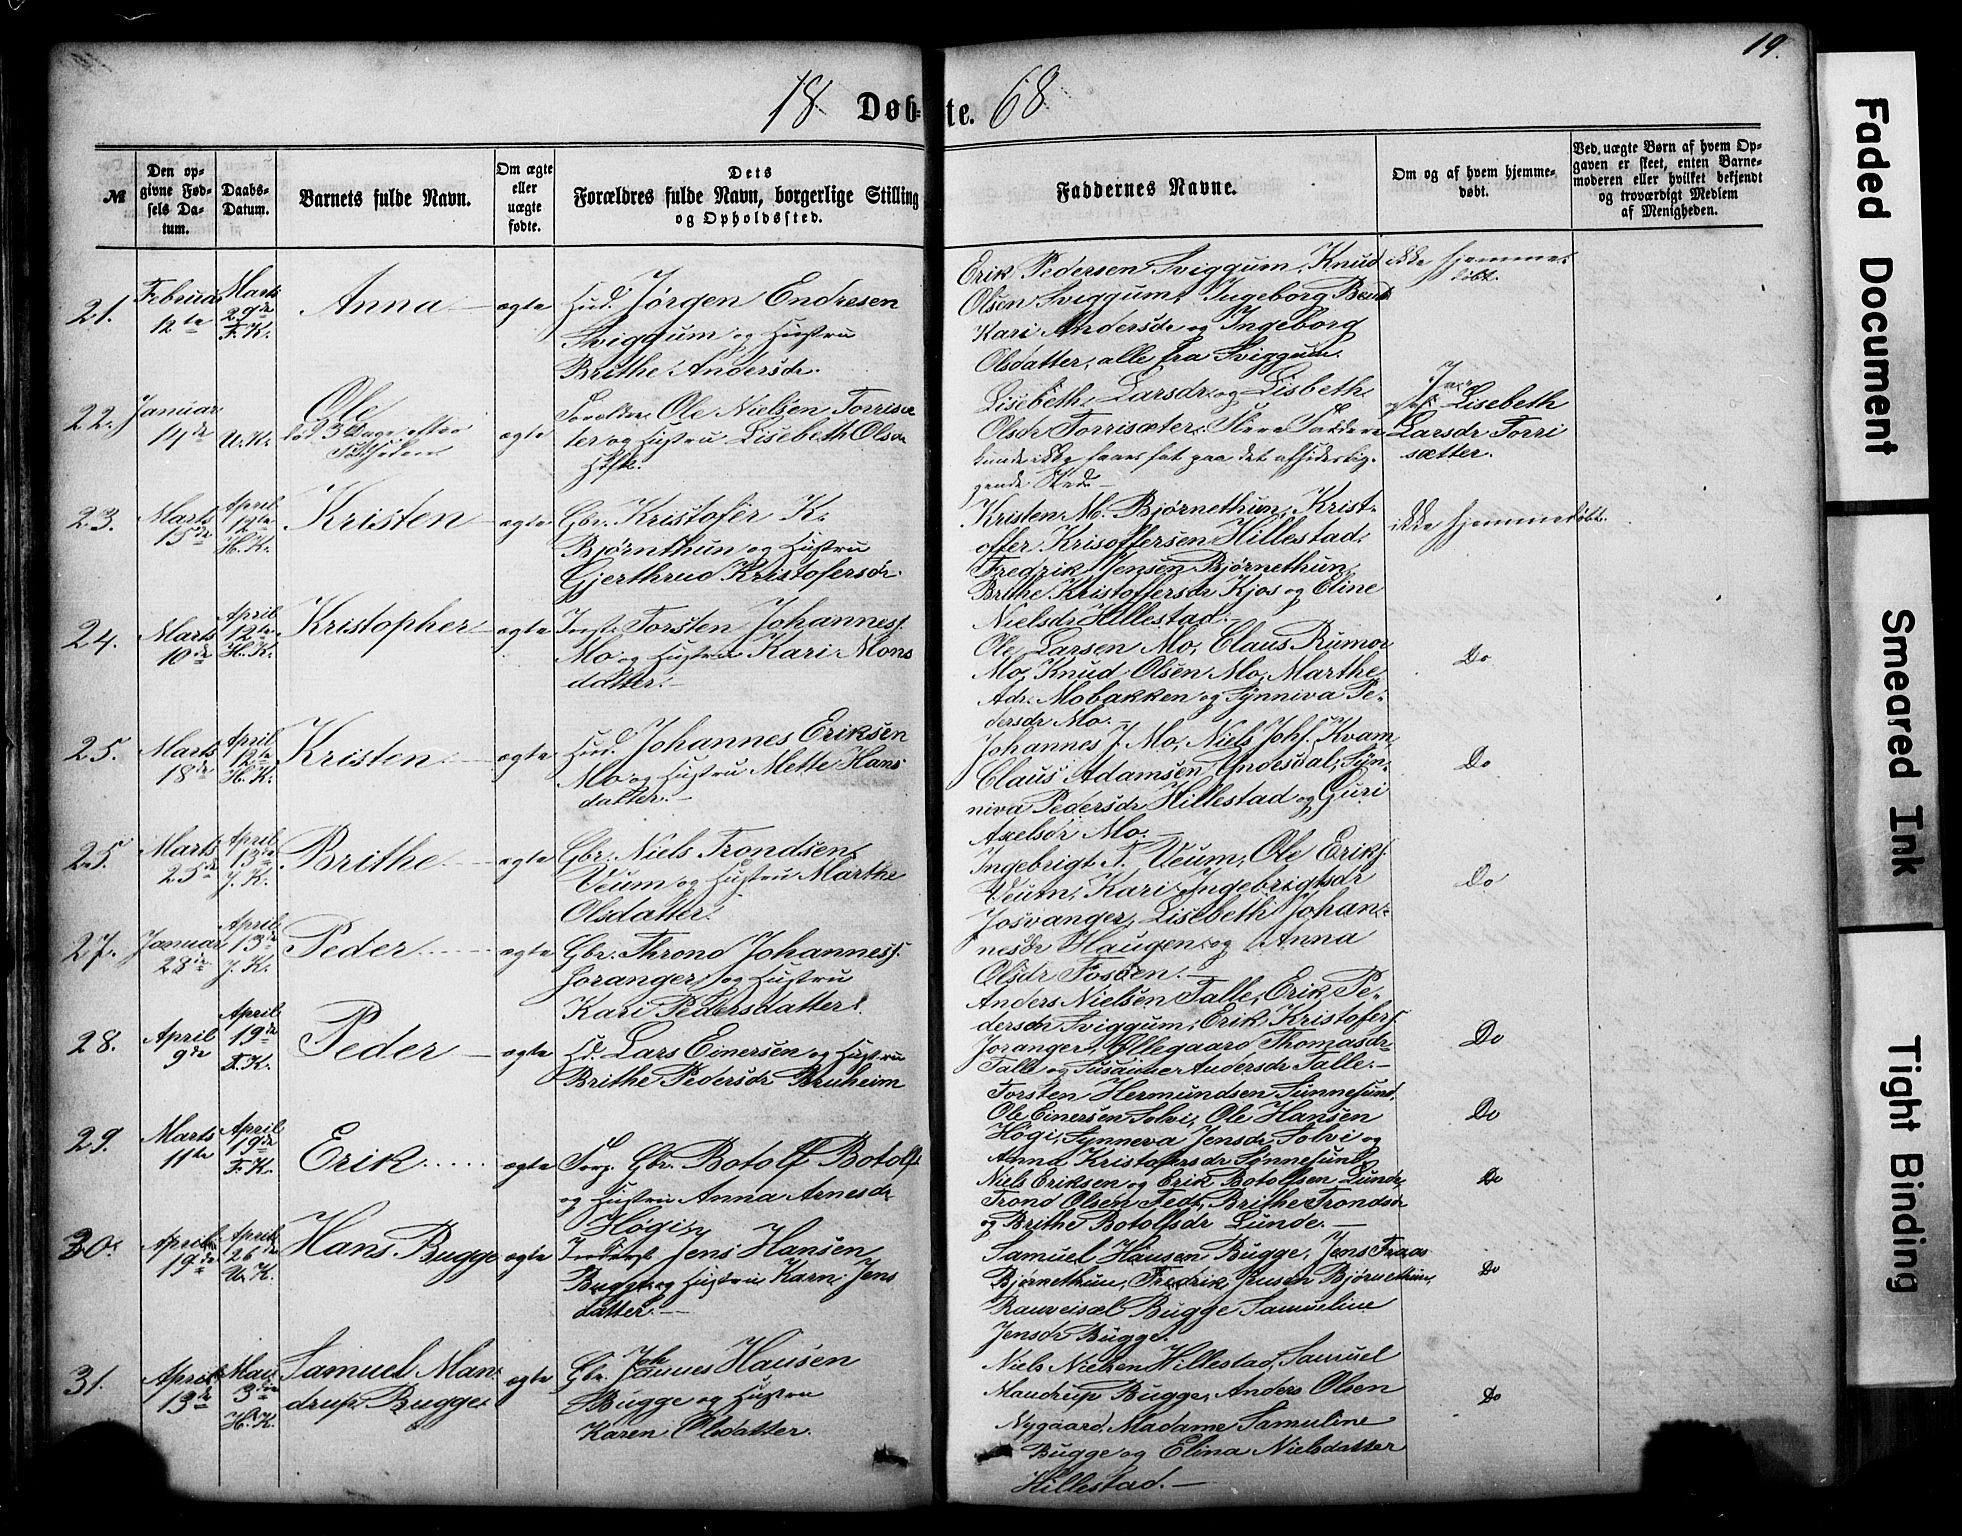 19.
18 Døbte. 68
№
Den opgivne Fødsels Datum.
Daabs-Datum.
Barnets fulde Navn.
Om ægte eller uægte fødte.
Dets Forældres fulde Navn, borgerlige Stilling og Opholdssted.
Faddernes Navne.
Om og af hvem hjemmedøbt.
Ved uægte Børn af hvem Opgaven er skeet, enten Barnemoderen eller hvilket bekjendt og troværdigt Medlem af Menigheden.
21. Februar 12te Marts 29de F.K. Anna ægte Jørgen Endresen
Sviggum og Hustru
Brithe Andersdr.
Erik Pedersen Sviggum, Knud
Olsen Sviggum, Ingeborg
Kari Andersdr og Ingeborg
Olsdatter, alle fra Sviggum.
ikke hjemmedøbt.
22. Januar 14de U.K. Ole
død 3 Dage efter
Fødselen
ægte Forældre Ole Nielsen Torrisæ
ter og Hustru Lisebeth Olsdr
Lisebeth Larsdr og Lisbeth
Olsdr Torrisæter. Flere Faddere
kunde ikke faaes fat paa det afsideslig-
gende Sted.
Ja
af Lisebeth
Larsdr Torri
sætter.
23. Marts 15de April 12te H.K. Kristen ægte Gbr. Kristofer K.
Bjørnthun og Hustru
Gjerthrud Kristofersdr.
Kristen M. Bjørnethun, Krist-
offer Krisoffersen Hillestad,
Fredrik Jensen Bjørnethun,
Brithe Kristoffersdr Kjos og Eline
Nielsdr Hillestad.
ikke hjemmedøbt.
24. Marts 10de April 12te H.K. Kristopher ægte Torsten Johanness.
Mo og Hustru Kari Mons
datter.
Ole Larsen Mo, Claus Rumor
Mo, Knud Olsen Mo, Marthe
Adr. Mobakken og Synniva Pe-
dersdr Mo.
Do
25. Marts 18de April 12te H.K. Kristen ægte Johannes Eriksen
Mo og Hustru Mette Hans
datter.
Johannes J. Mo, Niels Johs. Kvam,
Claus Adamsen Yndesdal, Syn-
niva Pedersdr Hillestad og Guri
Axelsdr Mo.
Do
25. Marts 25de April 13de J.K. Brithe ægte Gbr. Niels Trondsen
Veum og Hustru Marthe
Olsdatter.
Ingebrigt T. Veum, Ole Eriks.
Veum, Kari Ingebrigtsdr
Josvanger, Lisebeth Johan-
nesdr Haugen og Anna
Olsdr Fosøen.
Do
27. Januar 28de April 13de J.K. Peder ægte Gbr. Thrond Johanness.
Joranger og Hustru
Kari Pedersdatter.
Anders Nielsen Talle, Erik Pe-
dersen Sviggum, Erik Kristofers.
Joranger, Øllegaard Thomasdr
Talle og Susanne Andersdr Talle.
Do
28. April 9de April 19de F.K. Peder ægte Lars Einersen og Hustru
Brithe Pedersdr Bruheim
Torsten Hermundsen Sønnesund,
Ole Einersen Solvi, Ole Hansen
Høgi, Synneva Jensdr Solvi og
Anna Kristofersdr Sønnesund
Do
29. Marts 11te April 19de F.K. Erik ægte Gbr. Botolf Botolfs
og Hustru Anna Arnesdr
Høgi
Niels Eriksen og Erik Botolfsen Lunde,
Trond Olsen Fedt, Brithe Trondsdr
og Brithe Botolfsdr Lunde.
Do
30. April 19de April 26de U.K. Hans Bugge ægte Jens Hansen
Bugge og Hustru Karn Jens
datter.
Samuel Hansen Bugge, Jens
Bjørnethun, Fredrik Jensen Bjørnethun,
Bugge Samueline
Jensdr Bugge.
Do
31. April 13de Mai 3die H.K. Samuel Man
drup Bugge
ægte Gbr. Johannes Hansen
Bugge og Hustru
Karen Olsdatter.
Niels Nielsen Hillestad, Samuel
Mandrup Bugge, Anders Olsen
Nygaard, Madame Samuline
Bugge og Elina Nielsdatter
Hillestad.
Do
Faded Document
Smeared Ink
Tight Binding